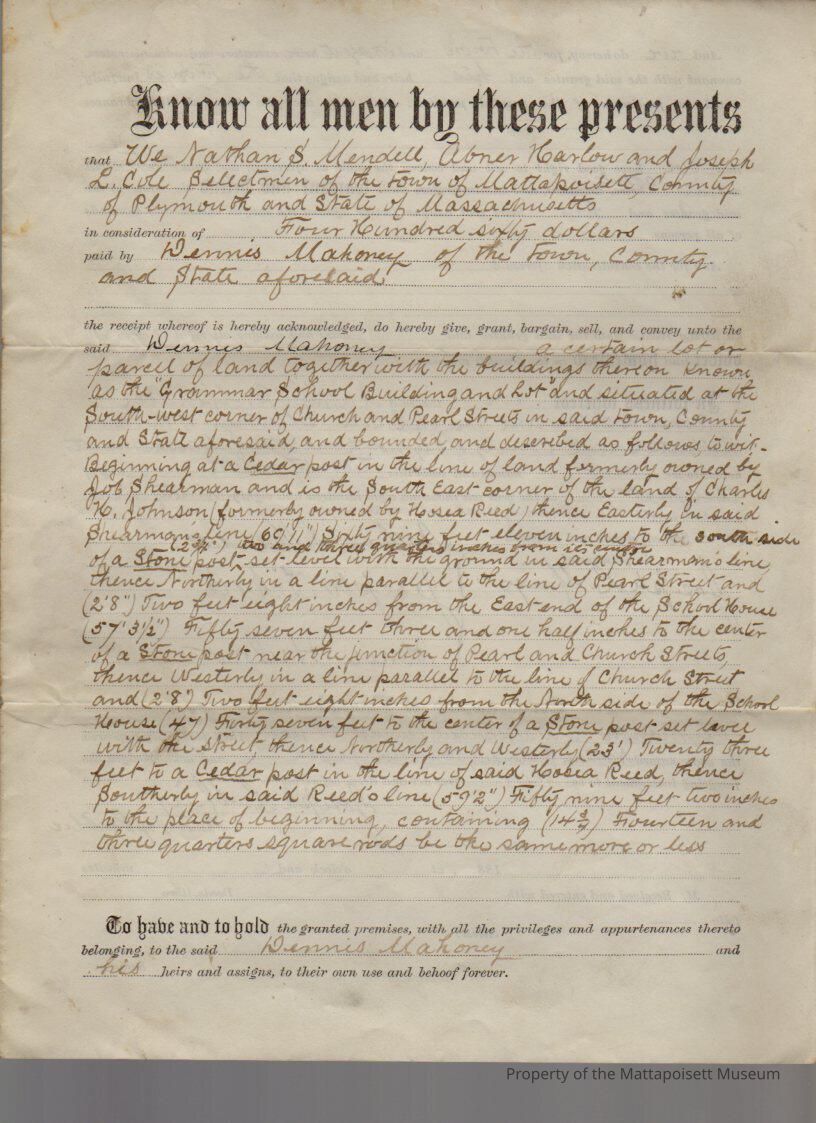 Know all men by these presents
that We Nathan S. Mendell, Abner Harlow and Joseph
L. Cole Selectmen of the town of Mattapoisett, County
of Plymouth and State of Massachusetts
in consideration of Four Hundred sixty dollars
paid by Dennis Mahoney of the town, County
and State aforesaid
the receipt whereof is hereby acknowledged, do hereby give, grant, bargain, sell, and convey unto the
said Dennis Mahoney a certain lot or
parcel of land together with the buildings thereon known
as the "Grammar School Building and Lot" and situated at the
South-west corner of Church and Pearl Streets in said town, County
and State aforesaid, and bounded, and described as follows, to wit-
Beginning at a Cedar post in the line of land formerly owned by
Job Shearman and is the South East corner of the land of Charles
H. Johnson (formerly owned by Hosea Reed) thence Easterly in said
Shearman's line (69'11") Sixty nine feet eleven inches to the south side
(2¾") two and three quarters inches from its center
of a Stone post set level with the ground in said Shearman's line,
thence Northerly in a line parallel to the line of Pearl Street and
(2'8") Two feet eight inches from the East end of the School House
(57' 3½") Fifty seven feet three and one half inches to the center
of a Stone post near the junction of Pearl and Church Streets,
thence Westerly in a line parallel to the line of Church Street
and (2'8") Two feet eight inches from the North side of the School
House (47) Forty seven feet to the center of a Stone post set level
with the street, thence Northerly and Westerly (23') Twenty three
feet to a Cedar post in the line of said Hosea Reed, thence
Southerly in said Reed's line (59'2") Fifty nine feet two inches
to the place of beginning, containing (14¾) Fourteen and
three quarters square rods be the same more or less
To have and to hold the granted premises, with all the privileges and appurtenances thereto
belonging, to the said Dennis Mahoney and
his heirs and assigns, to their own use and behoof forever.
Property of the Mattapoisett Museum